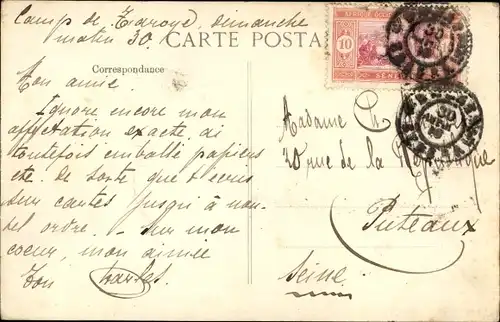 Camp de Tiaroye, dimanche
matin 30.
CARTE POSTA
Correspondance
AFRIQUE OCCI
10
SÉNÉ
Mon amie.
Ignore encore mon
affectation exacte ai
toutefois emballé papiers
etc. de sorte que t'ecris
sur cartes jusqu'à nou-
vel ordre. - Sur mon
coeur, mon aimée
Ton Charles.
Madame Ch
20 rue de la République
Puteaux
Seine.